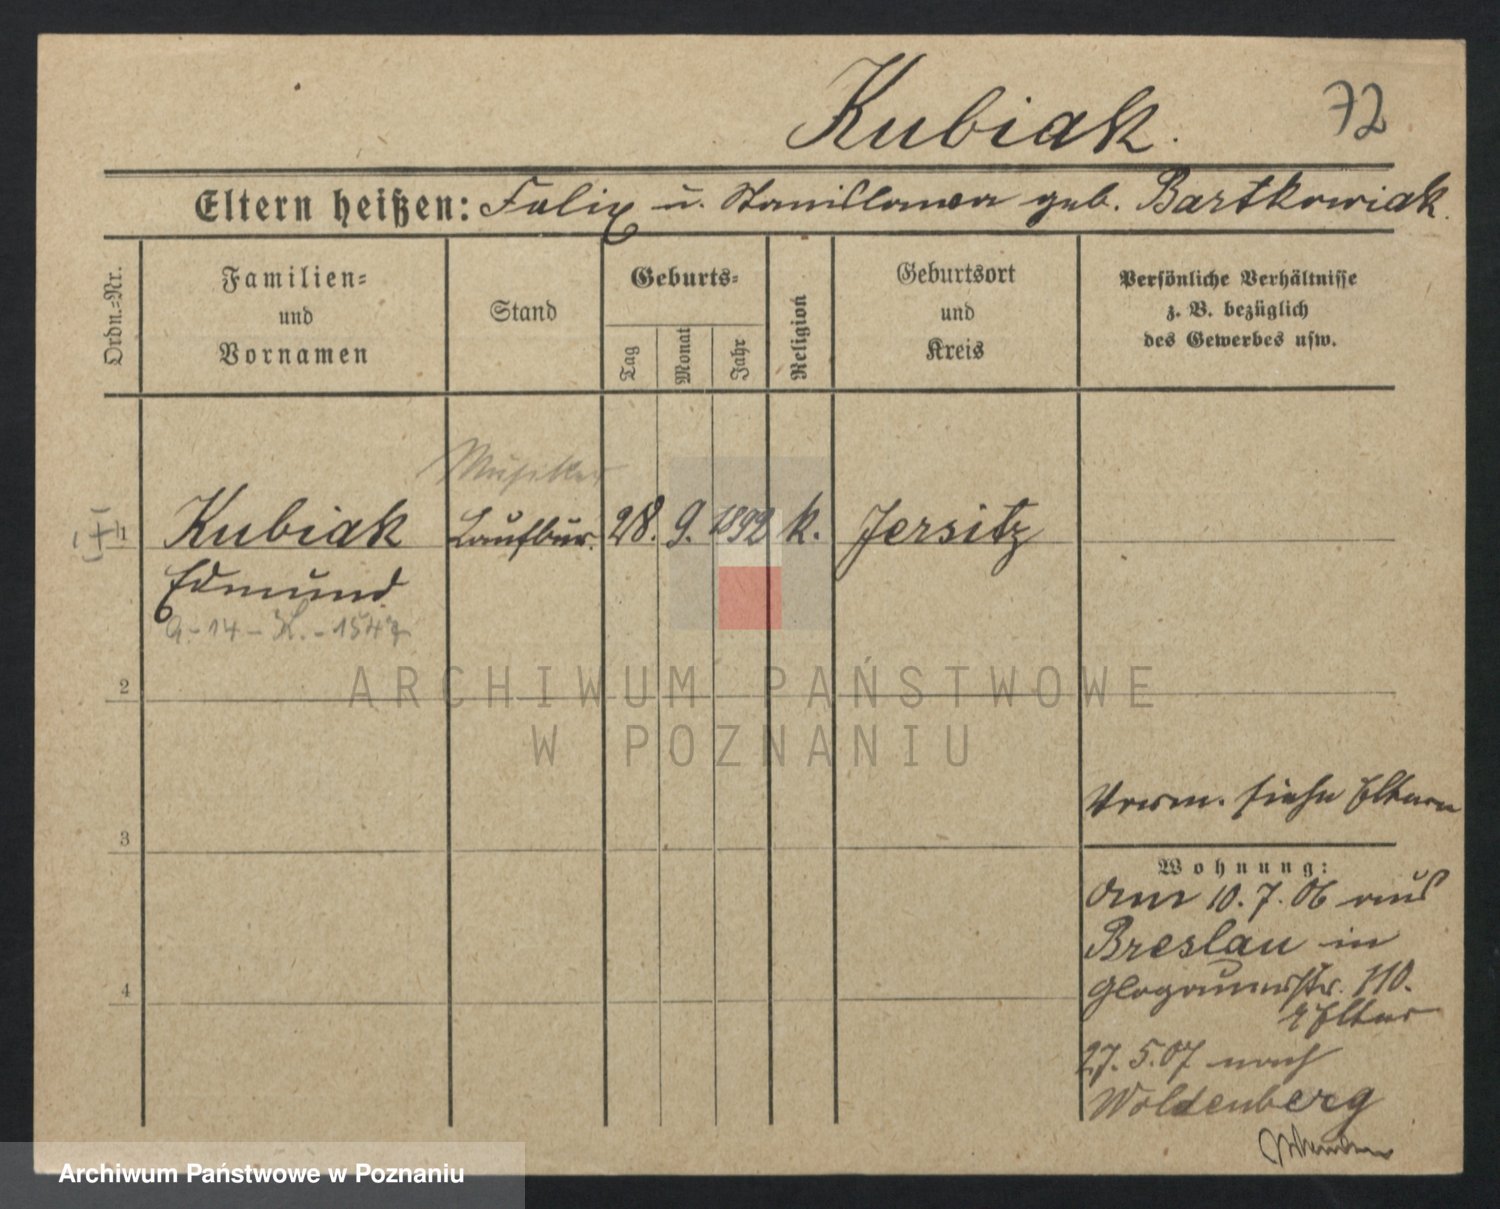 Kubiak.
72
Eltern heißen: Felix u. Stanislawa geb. Bartkowiak.
Ordn.=Nr.
Familien=
und
Vornamen
Stand
Geburts=
Tag
Monat
Jahr
Religion
Geburtsort
und
Kreis
Persönliche Verhältnisse
z. B. bezüglich
des Gewerbes usw.
Musiker
1
Kubiak Laufbur. 28. 9. 1892 k. Jersitz
Edmund
9.-14-K.-1547
2
ARCHIWUM PAŃSTWOWE
W POZNANIU
Vorm. siehe Eltern
3
Wohnung:
Am 10.7.06 aus
Breslau in
Glogauerstr. 110.
Eltern
4
27.5.07 nach
Woldenberg
Archiwum Państwowe w Poznaniu